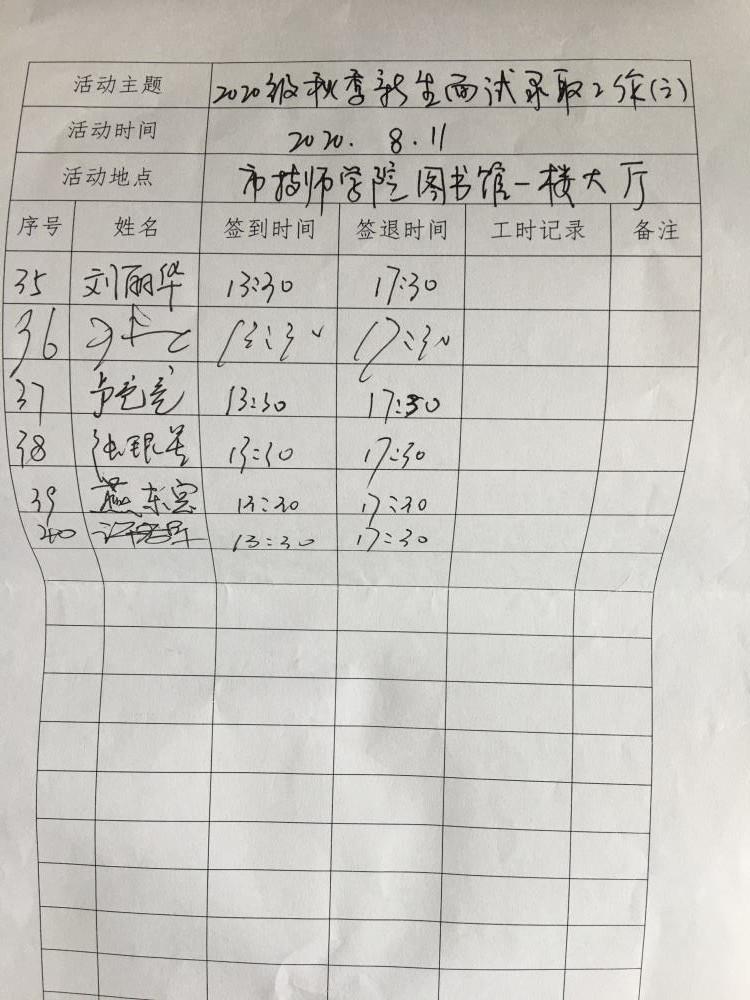 活动主题 2020级秋季新生面试录取工作(六)
活动时间 2020. 8.11
活动地点 市技师学院图书馆一楼大厅
序号 姓名 签到时间 签退时间 工时记录 备注
35 刘丽华 13:30 17:30
36 13:30 17:30
37 13:30 17:30
38 13:30 17:30
39 燕东 13:30 17:30
40 13:30 17:30